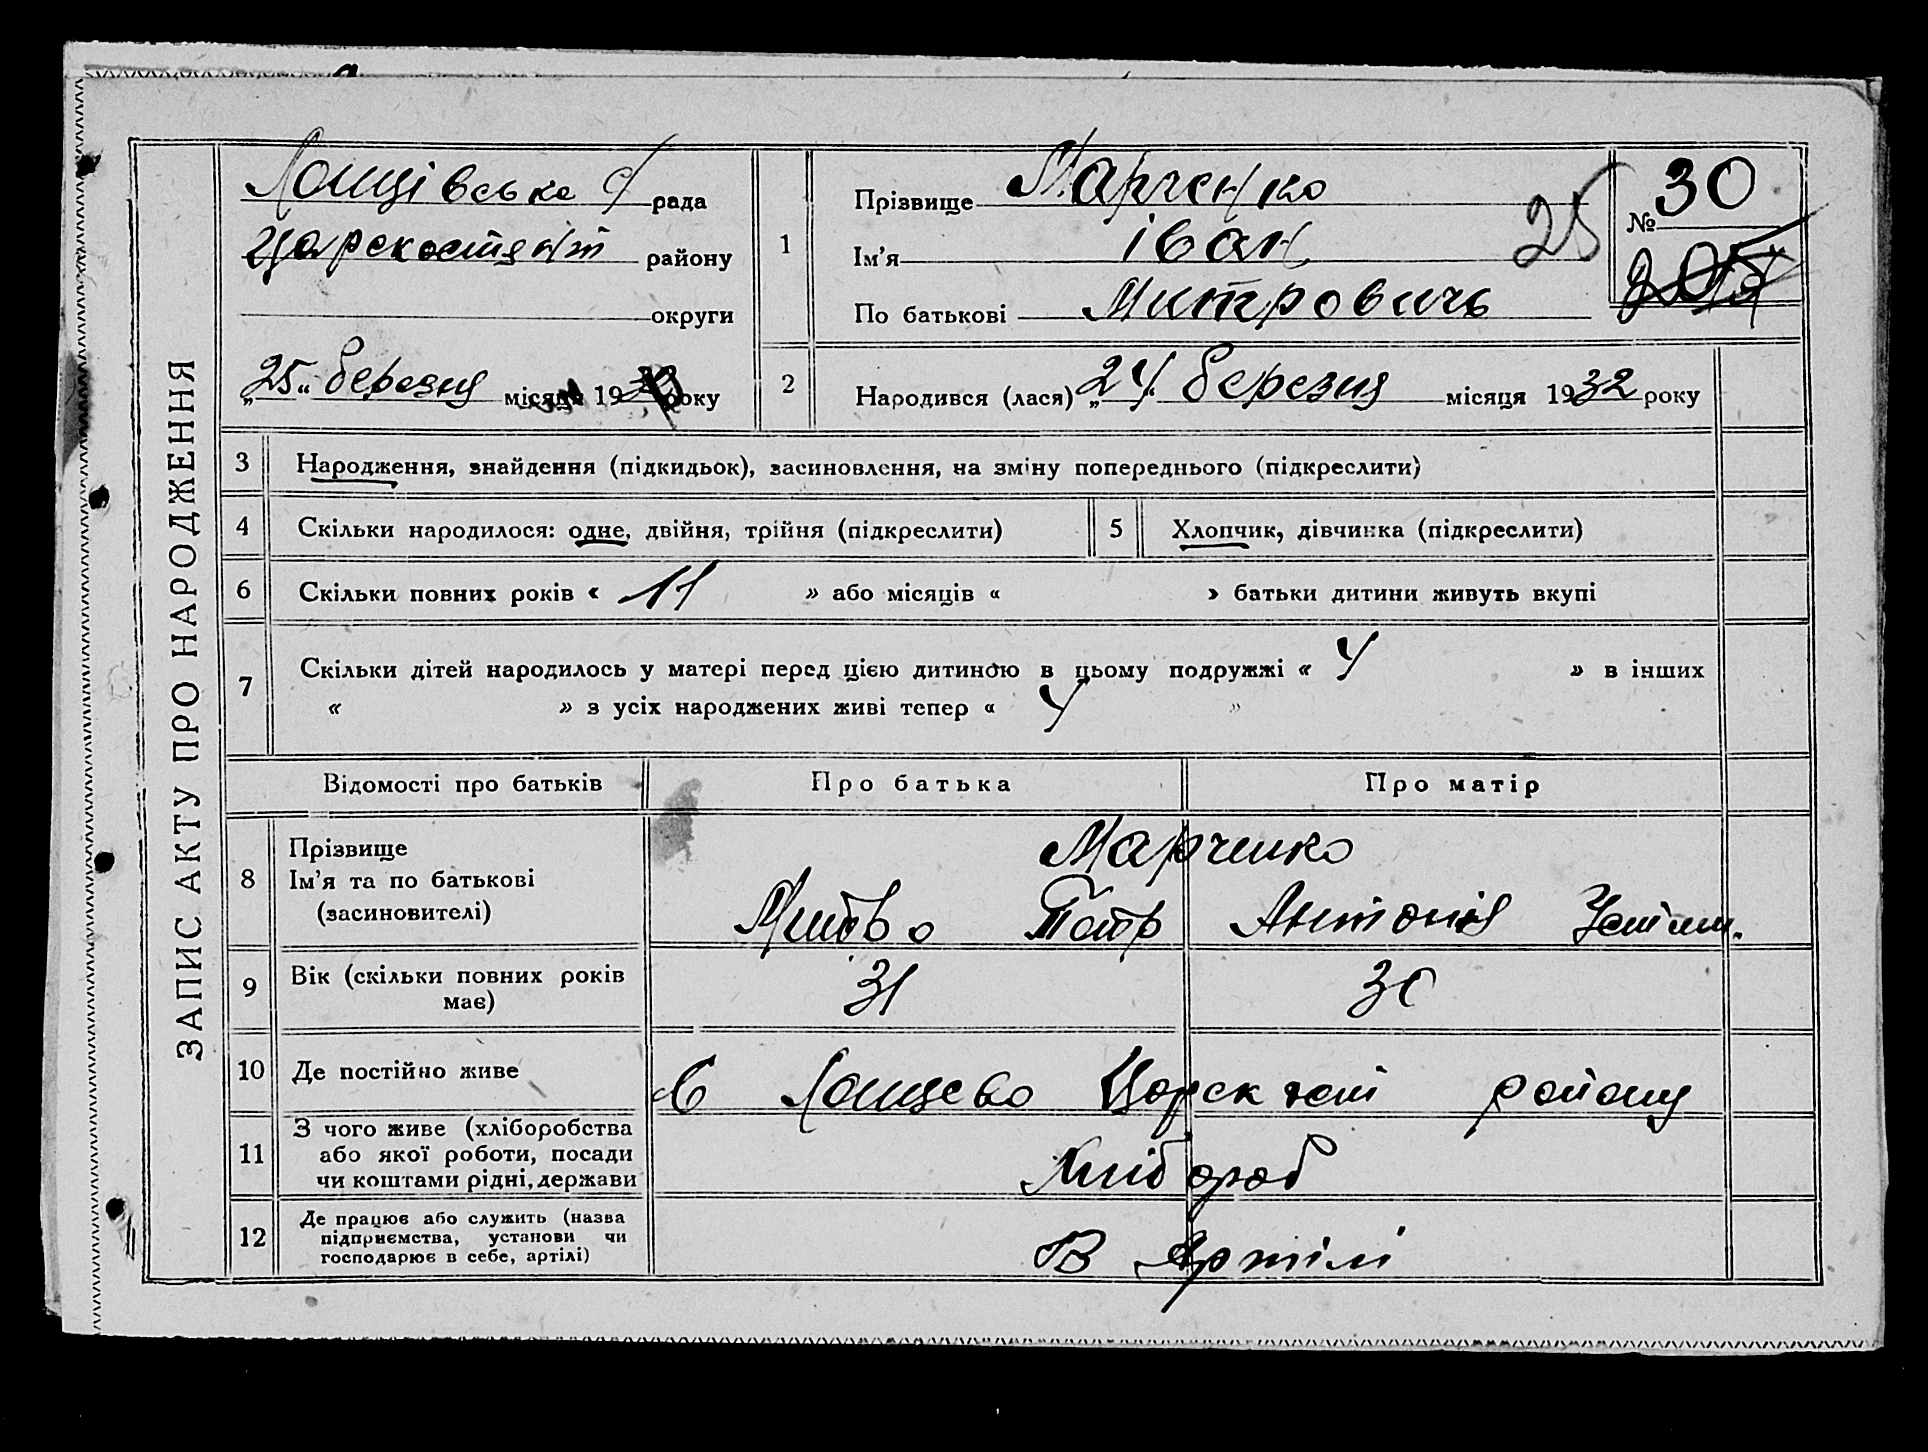 ЗАПИС АКТУ ПРО НАРОДЖЕННЯ
Лощівська с/рада
Царекостянт району
округи
„25“ березня місяця 19 року
1
Прізвище Марченко
Ім'я іван
По батькові Митровичь
25
№ 30
2
Народився (лася) „24“ березня місяця 1932 року
3 Народження, знайдення (підкидьок), засиновлення, на зміну попереднього (підкреслити)
4 Скільки народилося: одне, двійня, трійня (підкреслити)
5 Хлопчик, дівчинка (підкреслити)
6 Скільки повних років « 11 » або місяців « » батьки дитини живуть вкупі
7 Скільки дітей народилось у матері перед цією дитиною в цьому подружжі « 4 » в інших
« » з усіх народжених живі тепер « 4 »
Відомості про батьків Про батька Про матір
8 Прізвище
Ім'я та по батькові
(засиновителі)
Марченко
Антонія Устим.
9 Вік (скільки повних років
має)
31 30
10 Де постійно живе
С Лощево Царек район
11 З чого живе (хліборобства
або якої роботи, посади
чи коштами рідні, держави
Хлібороб
12 Де працює або служить (назва
підприємства, установи чи
господарює в себе, артілі)
В Артілі